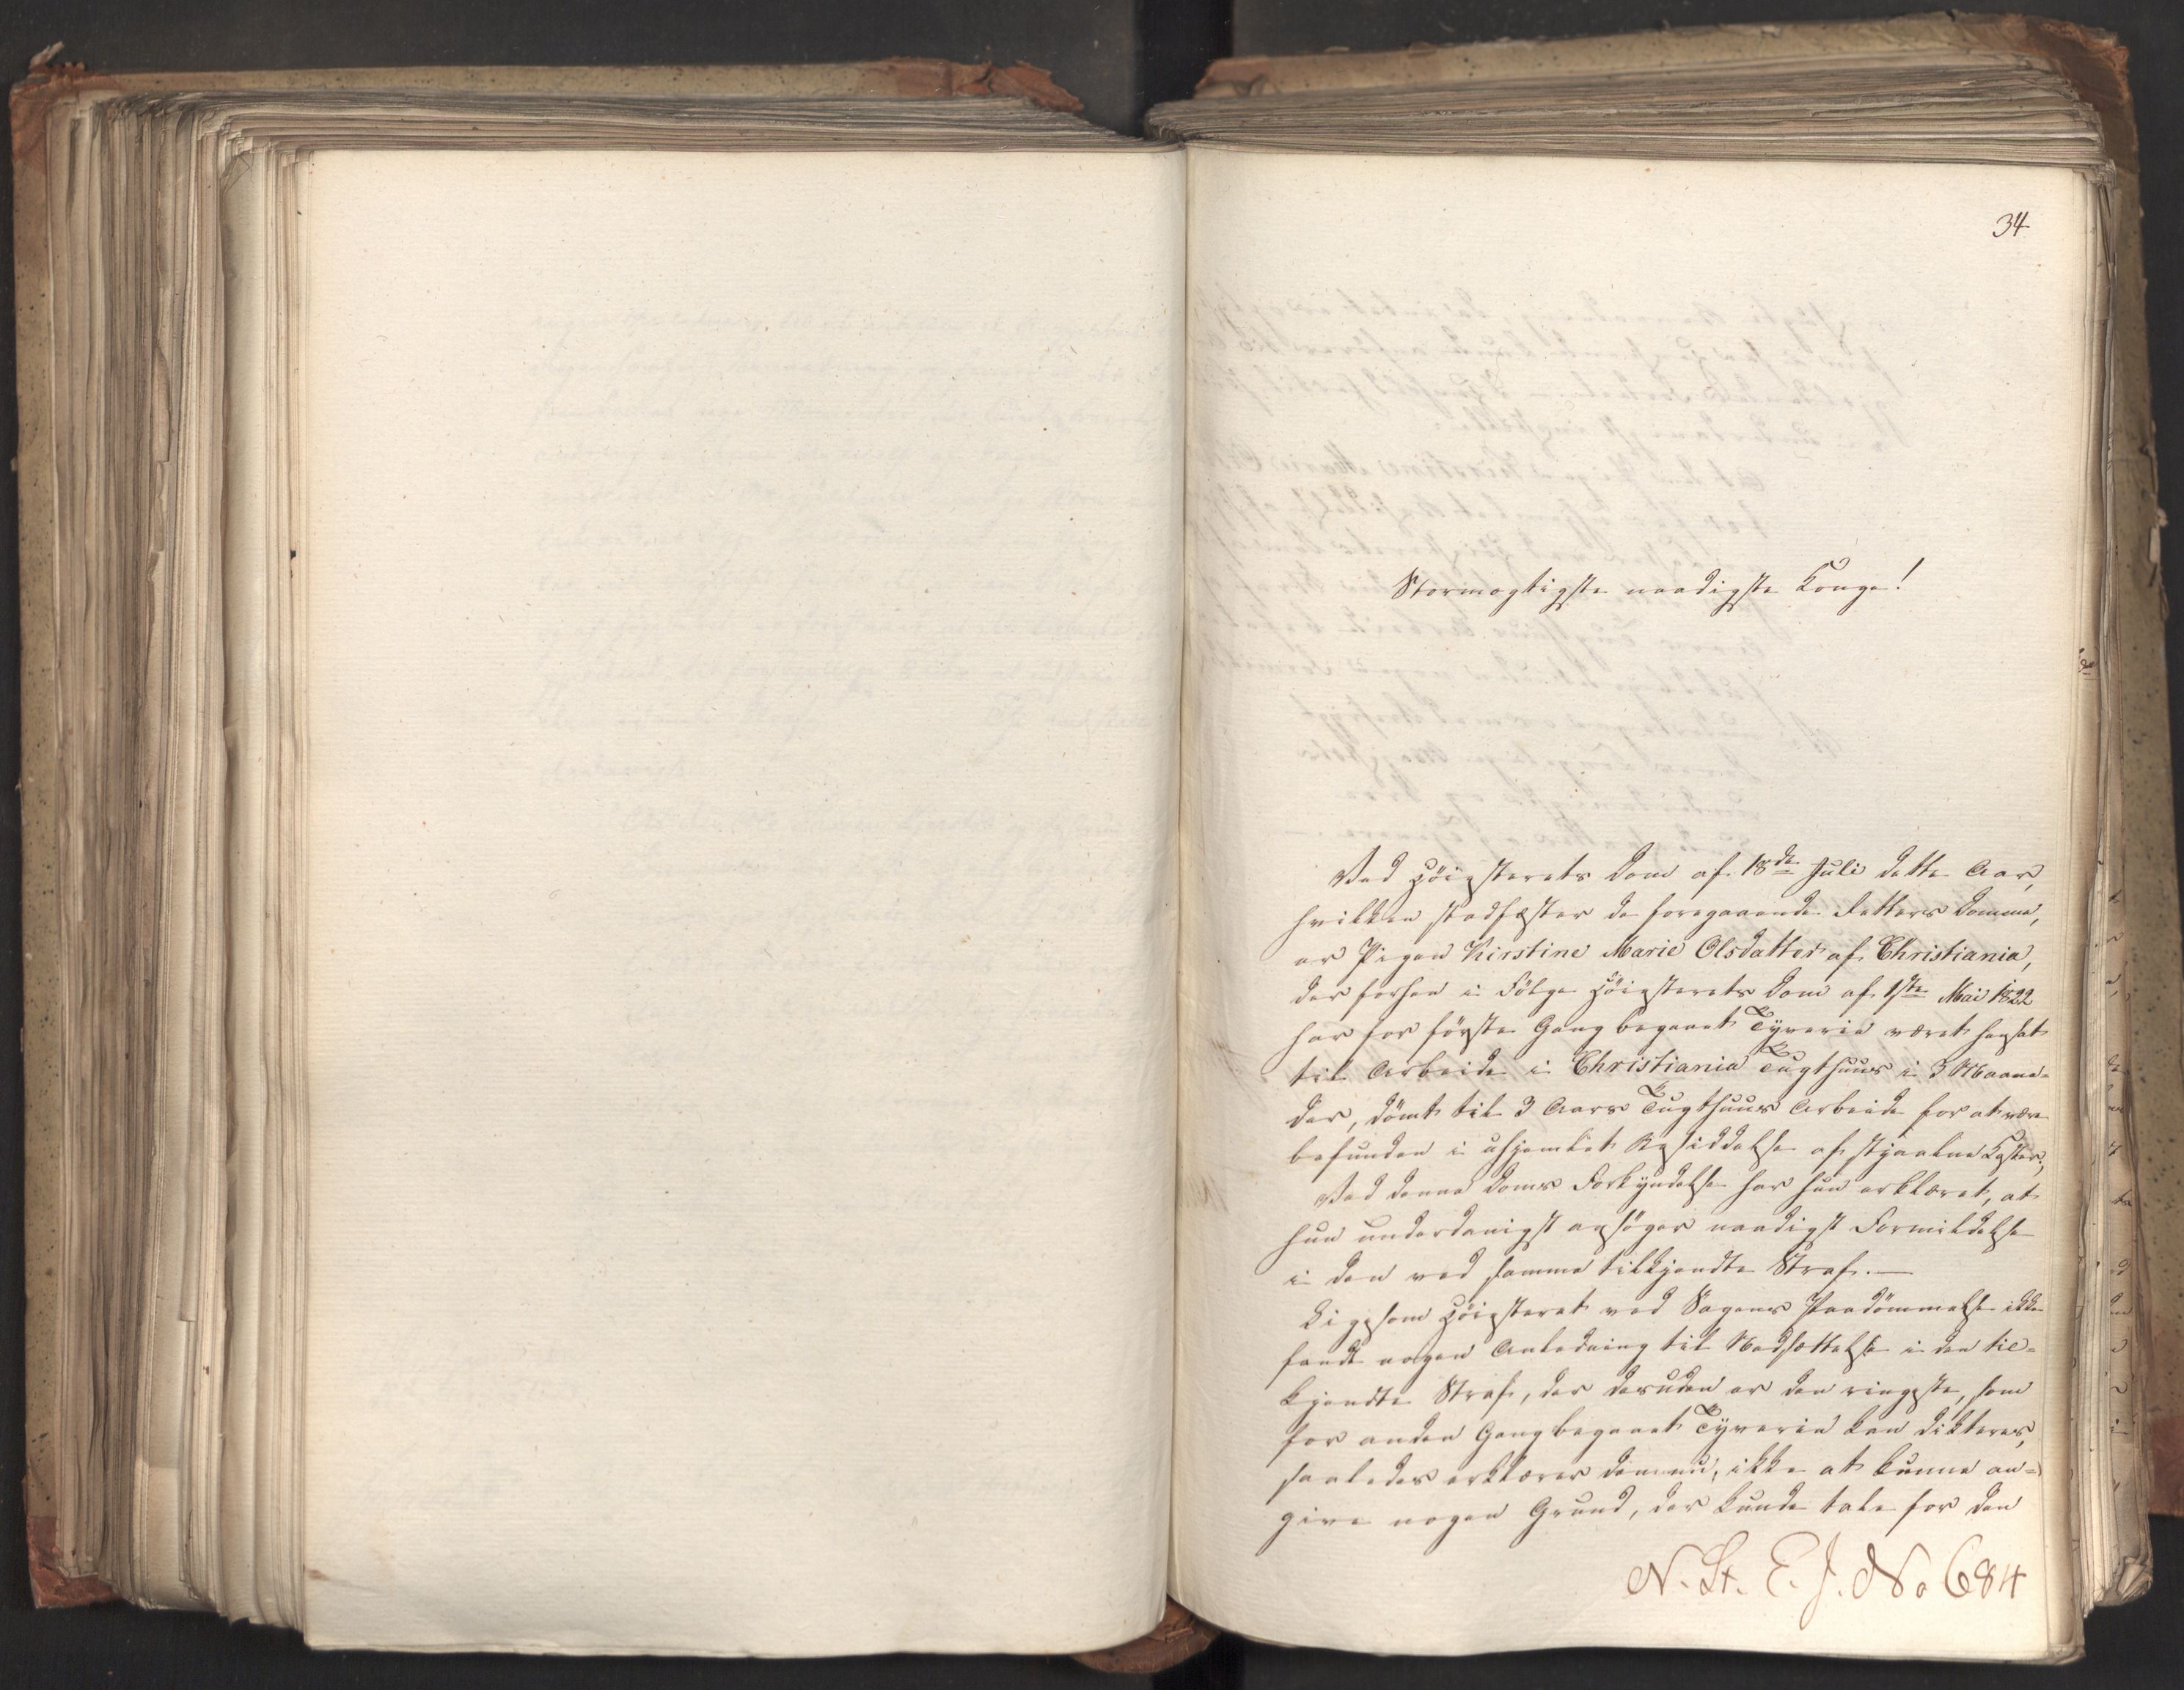 34
Stormægtigste naadigste Konge!
Ved Höiesterets Dom af 18de Juli dette Aar,
hvilken stadfæster de foregaaende Retters Domme,
er Pigen Kirstine Marie Olsdatter af Christiania,
der forhen i Fölge Höiesterets Dom af 1ste Mai 1822
har for förste Gang begaaet Tyverie været hensat
til Arbeide i Christiania Tugthuus i 3 Maane-
der, dömt til 3 Aars Tugthuus Arbeide for at være
befunden i uhjemlet Besiddelse af stjaalne Koster;
Ved denne Doms Forkyndelse har hun erklæret, at
hun underdanigst ansöger naadigst Formildelse
i den ved samme tilkjendte Straf.—
Ligesom Höiesteret ved Sagens Paadömmelse ikke
fandt nogen Anledning til Nedsættelse i den til-
kjendte Straf, der desuden er den ringeste, som
for anden Gang begaaet Tyverie kan dikteres,
saaledes erklærer den nu, ikke at kunne an-
give nogen Grund, der kunde tale for den
N. St. E. J. No 684